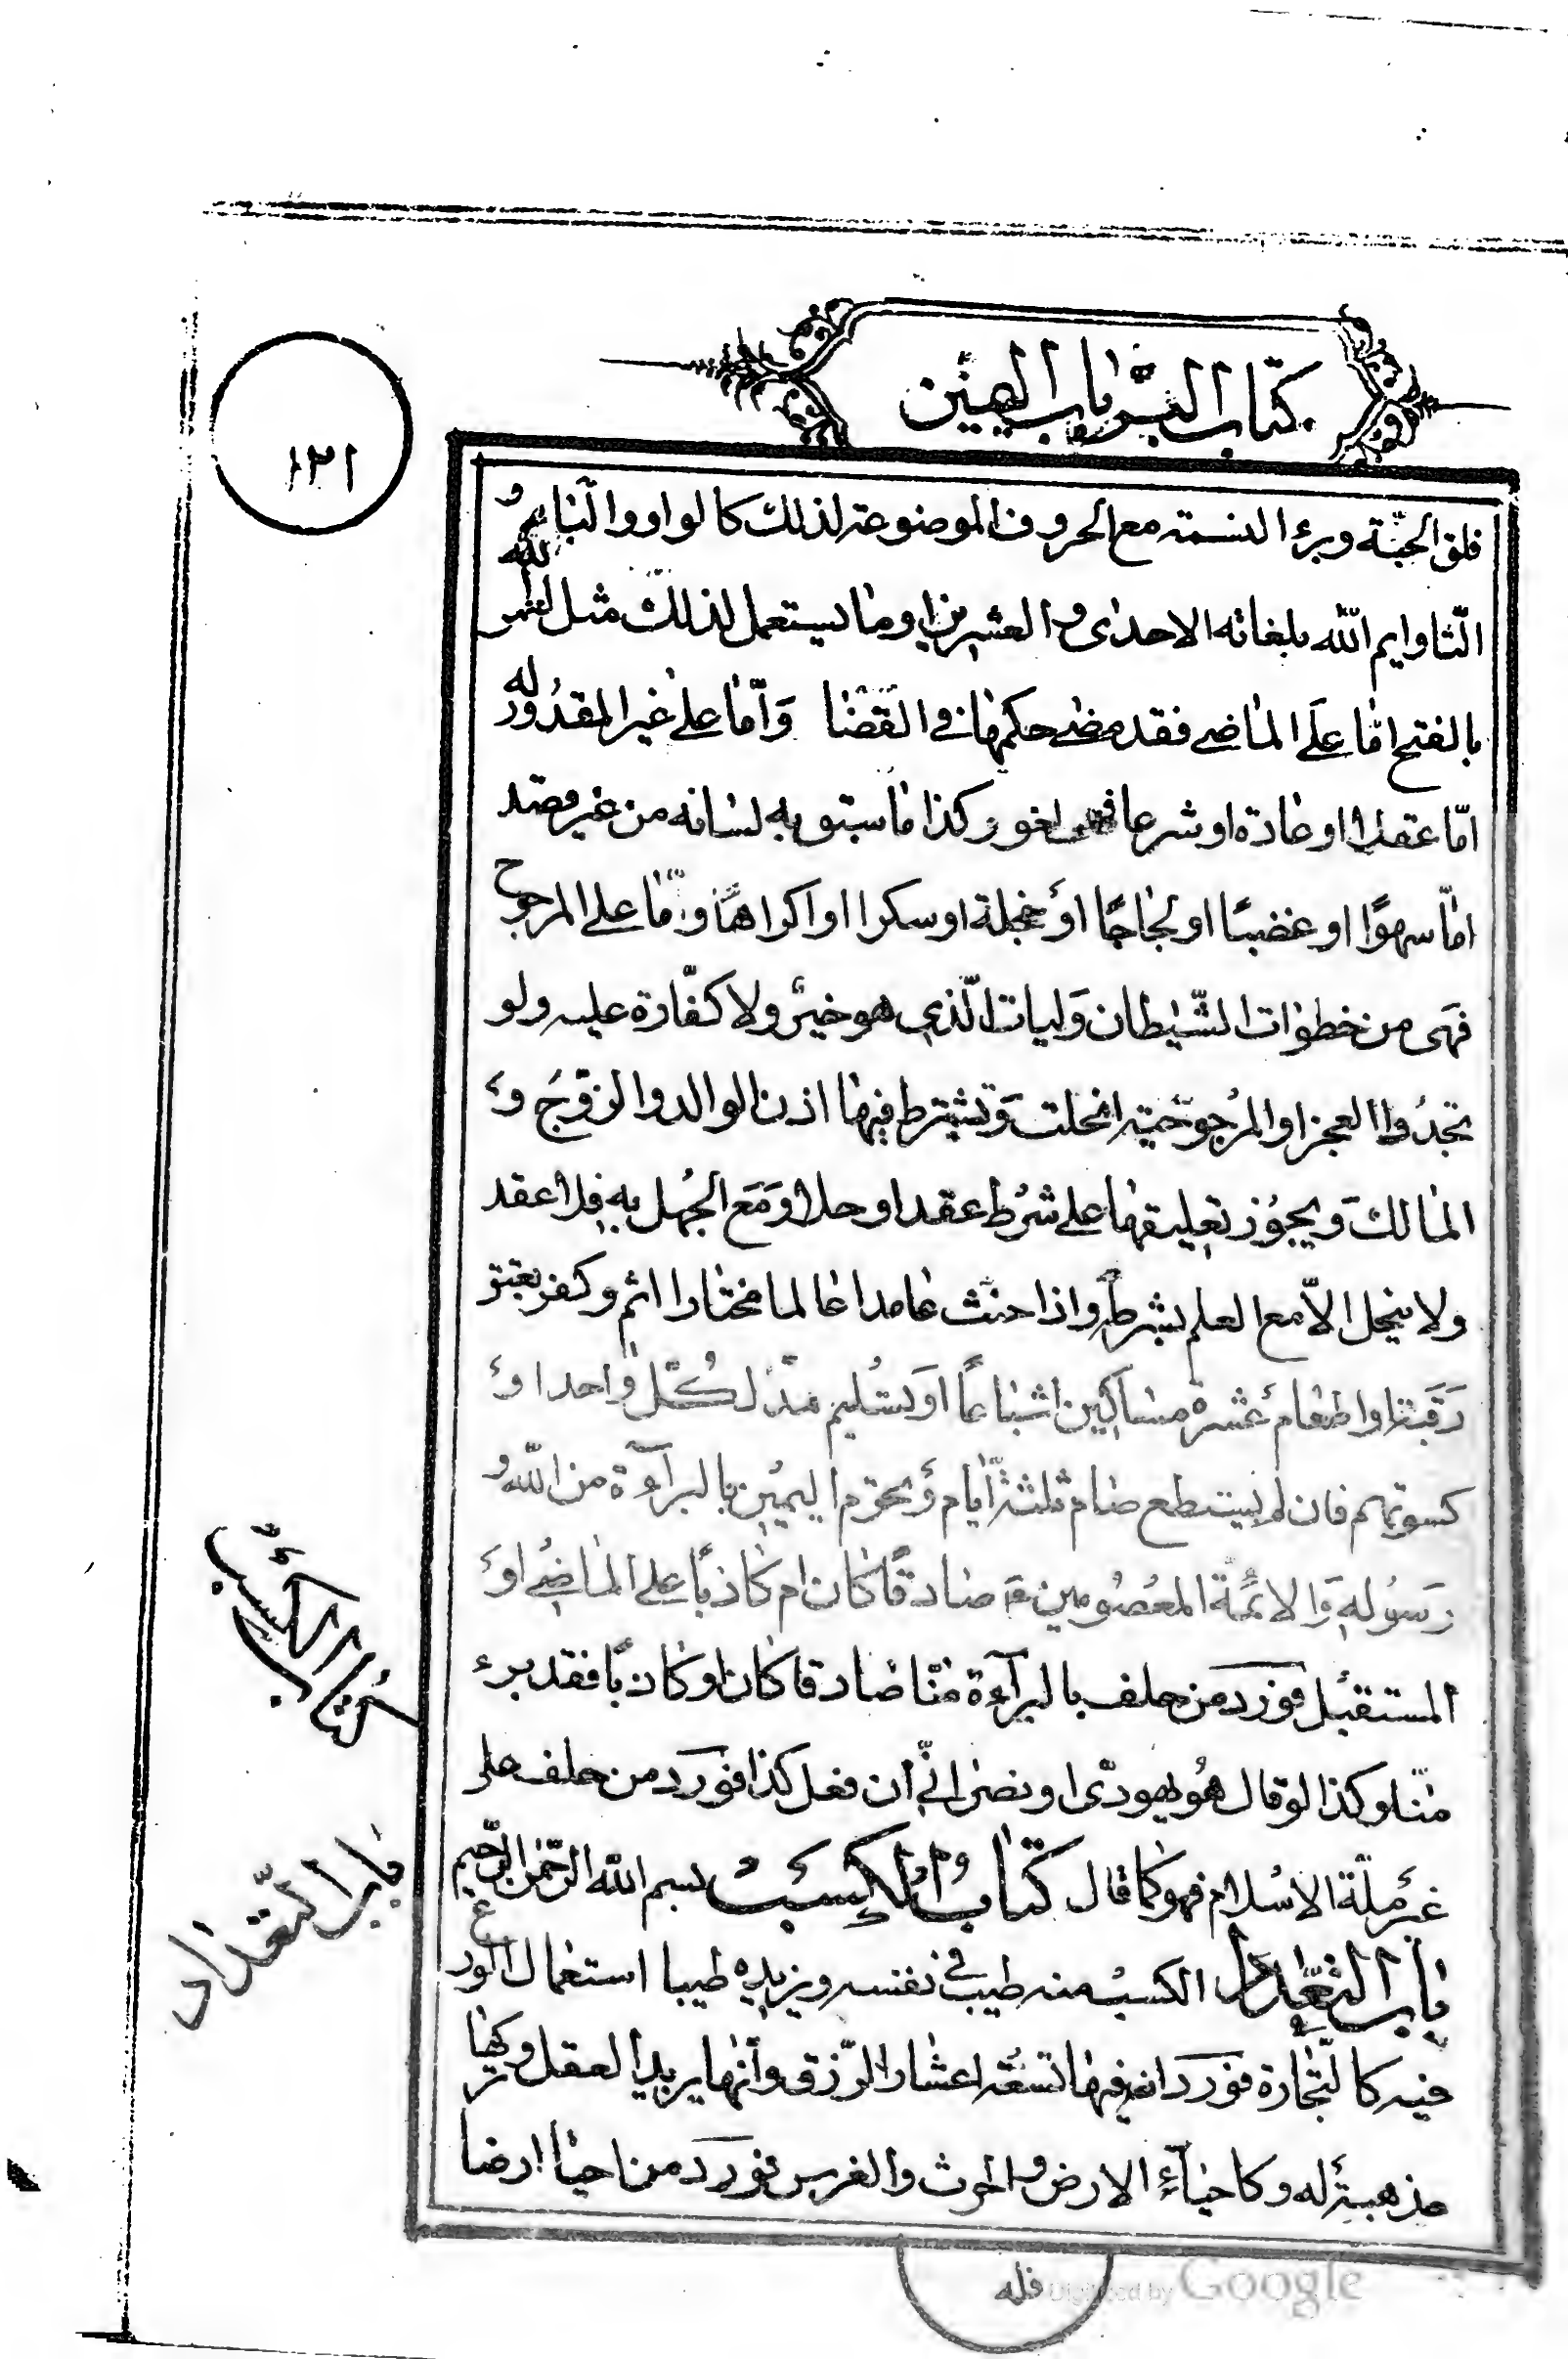 كتاب البر باب اليمين
١٣١
فلق الحبّة وبرء النسمة مع الحروف الموضوعة لذلك كالواو والبا و
التا وايم الله بلغاته الاحدى والعشرين او ما يستعمل لذلك مثل لعمر الله
بالفتح امّا على الماضي فقد مضى حكمها في القضا وَامّا على غير المقدُور له
امّا عقلا او عادة او شرعا فهى لغو وكذا ما سبق به لسانه من غير قصد
امّا سهوًا او غضبًا او لجاجًا او عجلة او سكرا او اكراها وامّا على المرجوح
فهى من خطوات الشّيطان وَليات الّذي هو خيرٌ ولا كفّارة عليه ولو
تجدّد العجز او المرجوحيّة انحلت وَتشترط فيها اذن الوالد والزّوج و
المالك وَيجوُز تعليقها على شرُط عقدا وحلا وَمَع الجهل به فلا عقد
ولا ينحل الاّ مع العلم بشرطه واذا حنث عامدا عالما مختارا اثم وكفر بعتق
رَقبة او اطعام عشرة مساكين اشباعًا او تسليم مدّ لكُلّ واحد او
كسوتهم فان لم يستطع صام ثلثة ايّام وَيحرم اليمين بالبرآءة من الله و
رَسُوله وَالائمّة المعصُومين صَادقًا كان ام كاذبًا على الماضي او
المستقبل فورَد من حلف بالبرآءة منّا صادقا كان او كاذبًا فقد برء
منّا وكذا لو قال هُو يهودىّ او نصرانىّ ان فعل كذا فورَد من حلف على
غير ملّة الاسلام فهو كما قال كتابُ الكسب بسم الله الرّحمن الرّحيم
باب التعداد الكسب منه طيب في نفسه ويزيده طيبا استعمال الورع
فيه كالتجارة فورَد ان فيها تسعة اعشار الرّزق وانها يزيد العقل وتركها
مذهبة له وكاحيآء الارض والحرث والغرس فورَد من احيا ارضا
كتاب الكسب
باب التعداد
فله
Digitized by Google